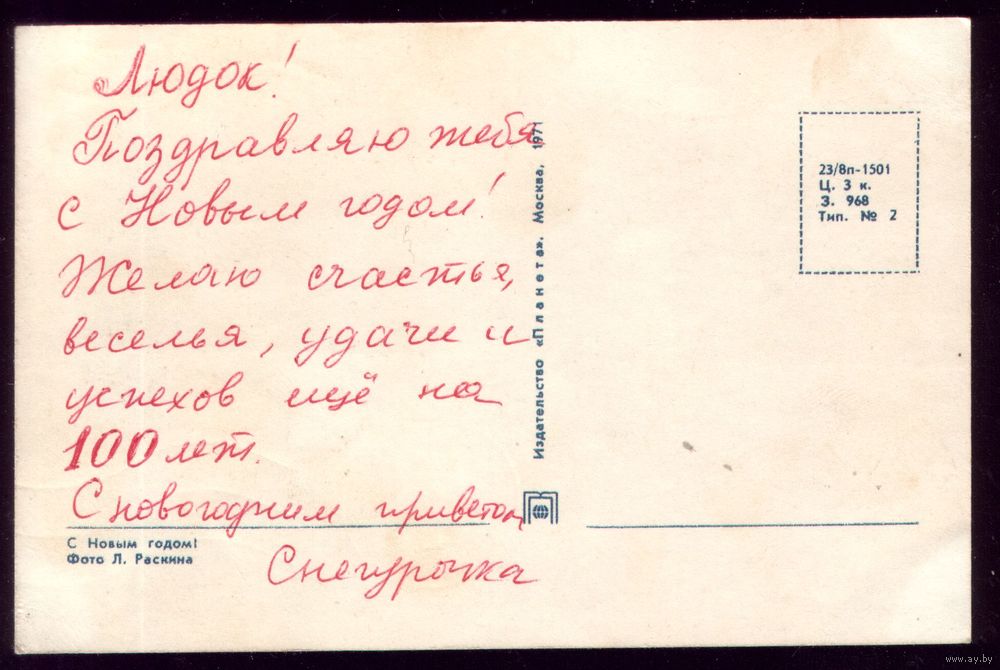 Людок!
Поздравляю тебя
с Новым годом!
Желаю счастья,
веселья, удачи и
успехов ещё на
100 лет.
С новогодним приветом
Снегурочка
С Новым годом!
Фото Л. Раскина
Издательство «Планета». Москва, 1971
23/8п-1501
Ц. 3 к.
З. 968
Тип. № 2
www.ay.by